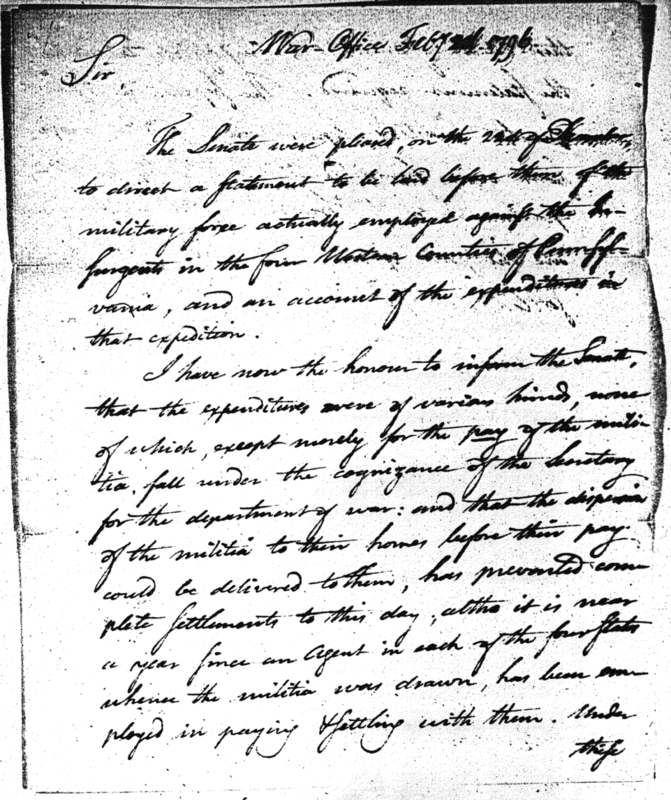 War-Office Feby 24. 1796.
Sir
The Senate were pleased, on the 22d of December,
to direct a statement to be laid before them of the
military force actually employed against the In-
surgents in the four Western Counties of Pennsyl-
vania, and an account of the expenditures in
that expedition.
I have now the honour to inform the Senate,
that the expenditures were of various kinds, none
of which, except merely for the pay of the mili-
tia, fall under the cognizance of the Secretary
for the department of war: and that the dispersion
of the militia to their homes before their pay
could be delivered to them, has prevented com-
plete settlements to this day, altho it is near
a year since an Agent in each of the four States
whence the militia was drawn, has been em-
ployed in paying & settling with them. Under
these